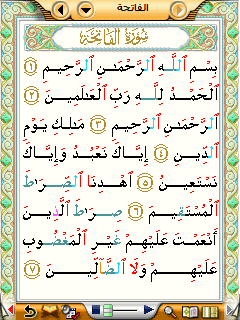 الفاتحة
سُورَةُ الْفَاتِحَةِ
بِسْمِ اللَّهِ الرَّحْمَٰنِ الرَّحِيمِ ١
الْحَمْدُ لِلَّهِ رَبِّ الْعَالَمِينَ ٢
الرَّحْمَٰنِ الرَّحِيمِ ٣ مَالِكِ يَوْمِ
الدِّينِ ٤ إِيَّاكَ نَعْبُدُ وَإِيَّاكَ
نَسْتَعِينُ ٥ اهْدِنَا الصِّرَاطَ
الْمُسْتَقِيمَ ٦ صِرَاطَ الَّذِينَ
أَنْعَمْتَ عَلَيْهِمْ غَيْرِ الْمَغْضُوبِ
عَلَيْهِمْ وَلَا الضَّالِّينَ ٧